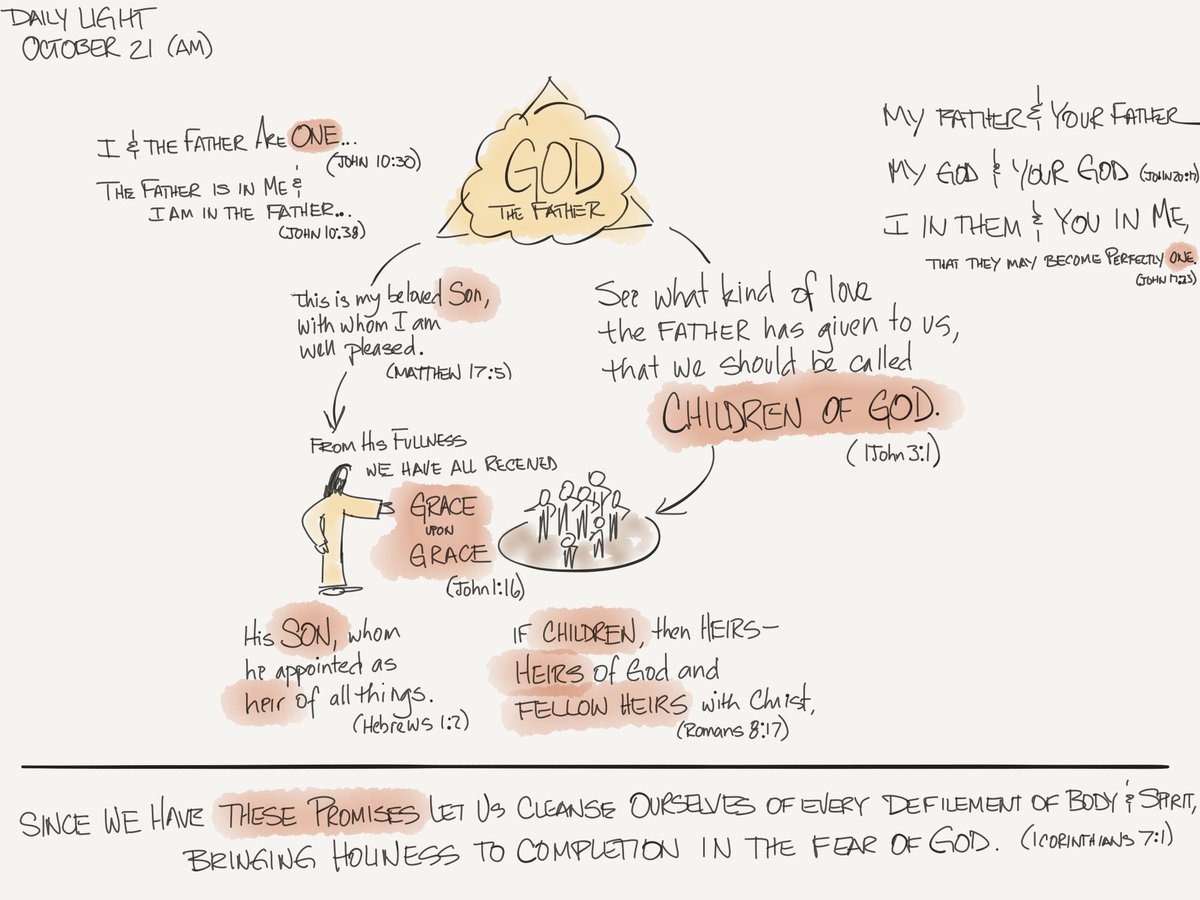 DAILY LIGHT
OCTOBER 21 (AM)
I & THE FATHER ARE ONE...
(JOHN 10:30)
THE FATHER IS IN ME &
I AM IN THE FATHER...
(JOHN 10:38)
GOD
THE FATHER
MY FATHER & YOUR FATHER—
MY GOD & YOUR GOD (JOHN 20:17)
I IN THEM & YOU IN ME,
THAT THEY MAY BECOME PERFECTLY ONE.
(JOHN 17:23)
This is my beloved Son,
with whom I am
well pleased.
(MATTHEW 17:5)
See what kind of love
the FATHER has given to us,
that we should be called
CHILDREN OF GOD.
(1John 3:1)
FROM HIS FULLNESS
WE HAVE ALL RECEIVED
GRACE
UPON
GRACE
(John 1:16)
His SON, whom
he appointed as
heir of all things.
(Hebrews 1:2)
IF CHILDREN, then HEIRS—
HEIRS of God and
FELLOW HEIRS with Christ,
(Romans 8:17)
SINCE WE HAVE THESE PROMISES LET US CLEANSE OURSELVES OF EVERY DEFILEMENT OF BODY & SPIRIT,
BRINGING HOLINESS TO COMPLETION IN THE FEAR OF GOD. (1 CORINTHIANS 7:1)